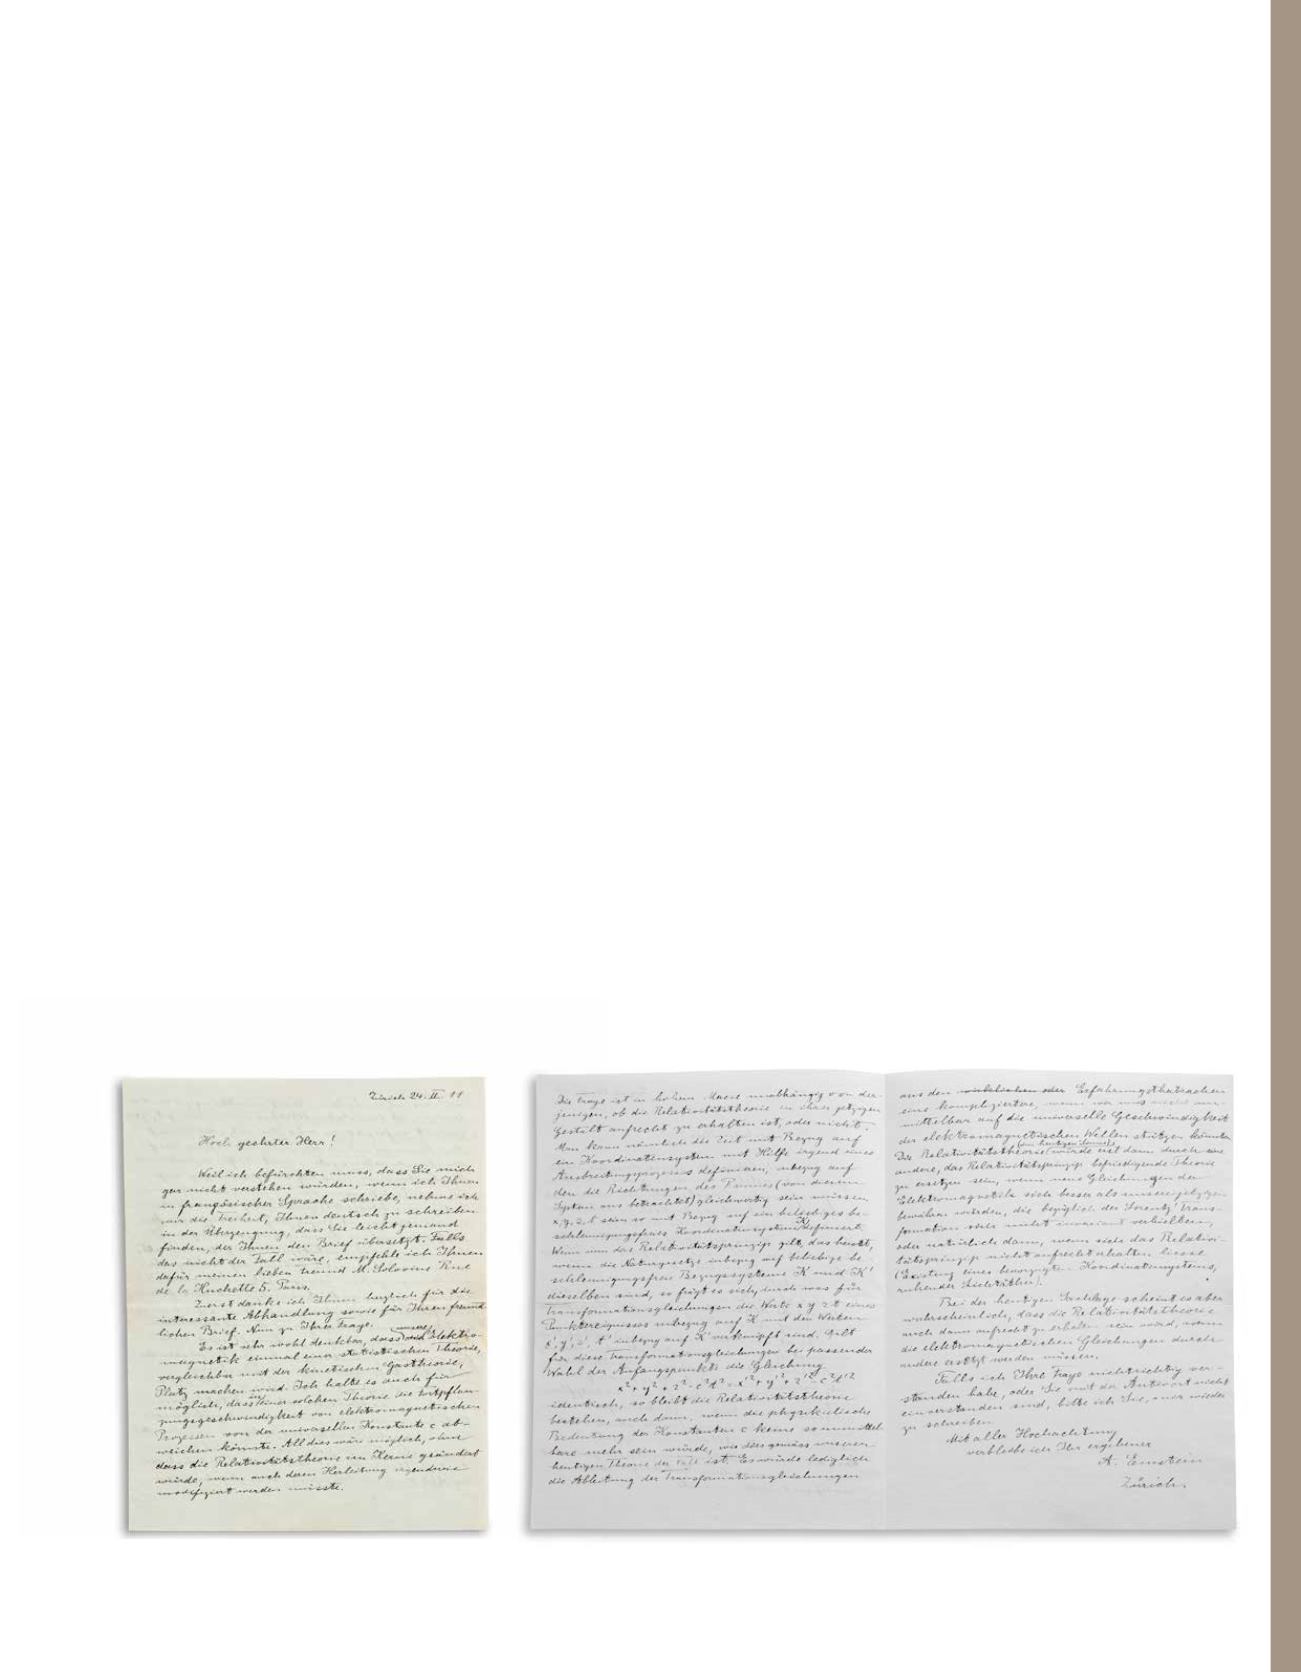 Zürich 24. II. 11
Hoch geehrter Herr!
Weil ich befürchten muss, dass Sie mich
gar nicht verstehen würden, wenn ich Ihnen
in französischer Sprache schriebe, nehme ich
mir die Freiheit, Ihnen deutsch zu schreiben
in der Überzeugung, dass Sie leicht jemand
finden, der Ihnen den Brief übersetzt. Falls
das nicht der Fall wäre, empfehle ich Ihnen
dafür meinen lieben Freund M. Solovine Rue
de la Huchette 5. Paris.
Zuerst danke ich Ihnen herzlich für die
interessante Abhandlung sowie für Ihren freund-
lichen Brief. Nun zu Ihrer Frage.
Es ist sehr wohl denkbar, dass unsere Elektro-
magnetik einmal einer statistischen Theorie,
vergleichbar mit der kinetischen Gastheorie,
Platz machen wird. Ich halte es auch für
möglich, dass in einer solchen Theorie die Fortpflan-
zungsgeschwindigkeit von elektromagnetischen
Prozessen von der universellen Konstante c ab-
weichen könnte. All dies wäre möglich, ohne
dass die Relativitätstheorie im Kerne geändert
würde, wenn auch deren Herleitung irgendwie
modifiziert werden müsste.
Die Frage ist in hohem Masse unabhängig von der-
jenigen, ob die Relativitätstheorie in ihrer jetzigen
Gestalt aufrecht zu erhalten ist, oder nicht.
Man kann nämlich die Zeit mit Bezug auf
ein Koordinatensystem mit Hilfe irgend eines
Ausbreitungsprozesses definieren, inbezug auf
den die Richtungen des Raumes (von diesem
System aus betrachtet) gleichwertig sein müssen
x, y, z, t seien so mit Bezug auf ein beliebiges be-
schleunigungsfreies Koordinatensystem K definiert.
Wenn nun das Relativitätsprinzip gilt, das heisst,
wenn die Naturgesetze inbezug auf beliebige be-
schleunigungsfreie Bezugssysteme K und K'
dieselben sind, so frägt es sich, durch was für
Transformationsgleichungen die Werte x y z t eines
Punktereignisses inbezug auf K mit den Werten
x', y', z', t' inbezug auf K' verknüpft sind. Gilt
für diese Transformationsgleichungen bei passender
Wahl der Anfangspunkte die Gleichung
x² + y² + z² - c²t² = x'² + y'² + z'² - c²t'²
identisch, so bleibt die Relativitätstheorie
bestehen, auch dann, wenn die physikalische
Bedeutung der Konstanten c keine so unmittel-
bare mehr sein würde, wie dies gemäss unserer
heutigen Theorie der Fall ist. Es würde lediglich
die Ableitung der Transformationsgleichungen
aus den wirklichen oder Erfahrungsthatsachen
eine kompliziertere, wenn wir uns nicht un-
mittelbar auf die universelle Geschwindigkeit
der elektromagnetischen Wellen stützen könnten
Die Relativitätstheorie (im heutigen Sinne) würde erst dann durch eine
andere, das Relativitätsprinzip befriedigende Theorie
zu ersetzen sein, wenn neue Gleichungen der
Elektromagnetik sich besser als unsere jetzigen
bewähren würden, die bezüglich der Lorentz'Trans-
formation nicht invariant
oder natürlich dann, wenn sich das Relativi-
tätsprinzip nicht aufrecht erhalten liesse
(Existenz eines bevorzugten Koordinatensystems,
ruhender Lichtäther).
Bei der heutigen Sachlage scheint es aber
wahrscheinlich, dass die Relativitätstheorie
auch dann aufrecht zu erhalten sein wird, wenn
die elektromagnetischen Gleichungen durch
andere ersetzt werden müssen.
Falls ich Ihre Frage nicht richtig ver-
standen habe, oder Sie mit der Antwort nicht
einverstanden sind, bitte ich Sie, mir wieder
zu schreiben.
Mit aller Hochachtung
verbleibe ich Ihr ergebener
A. Einstein
Zürich.